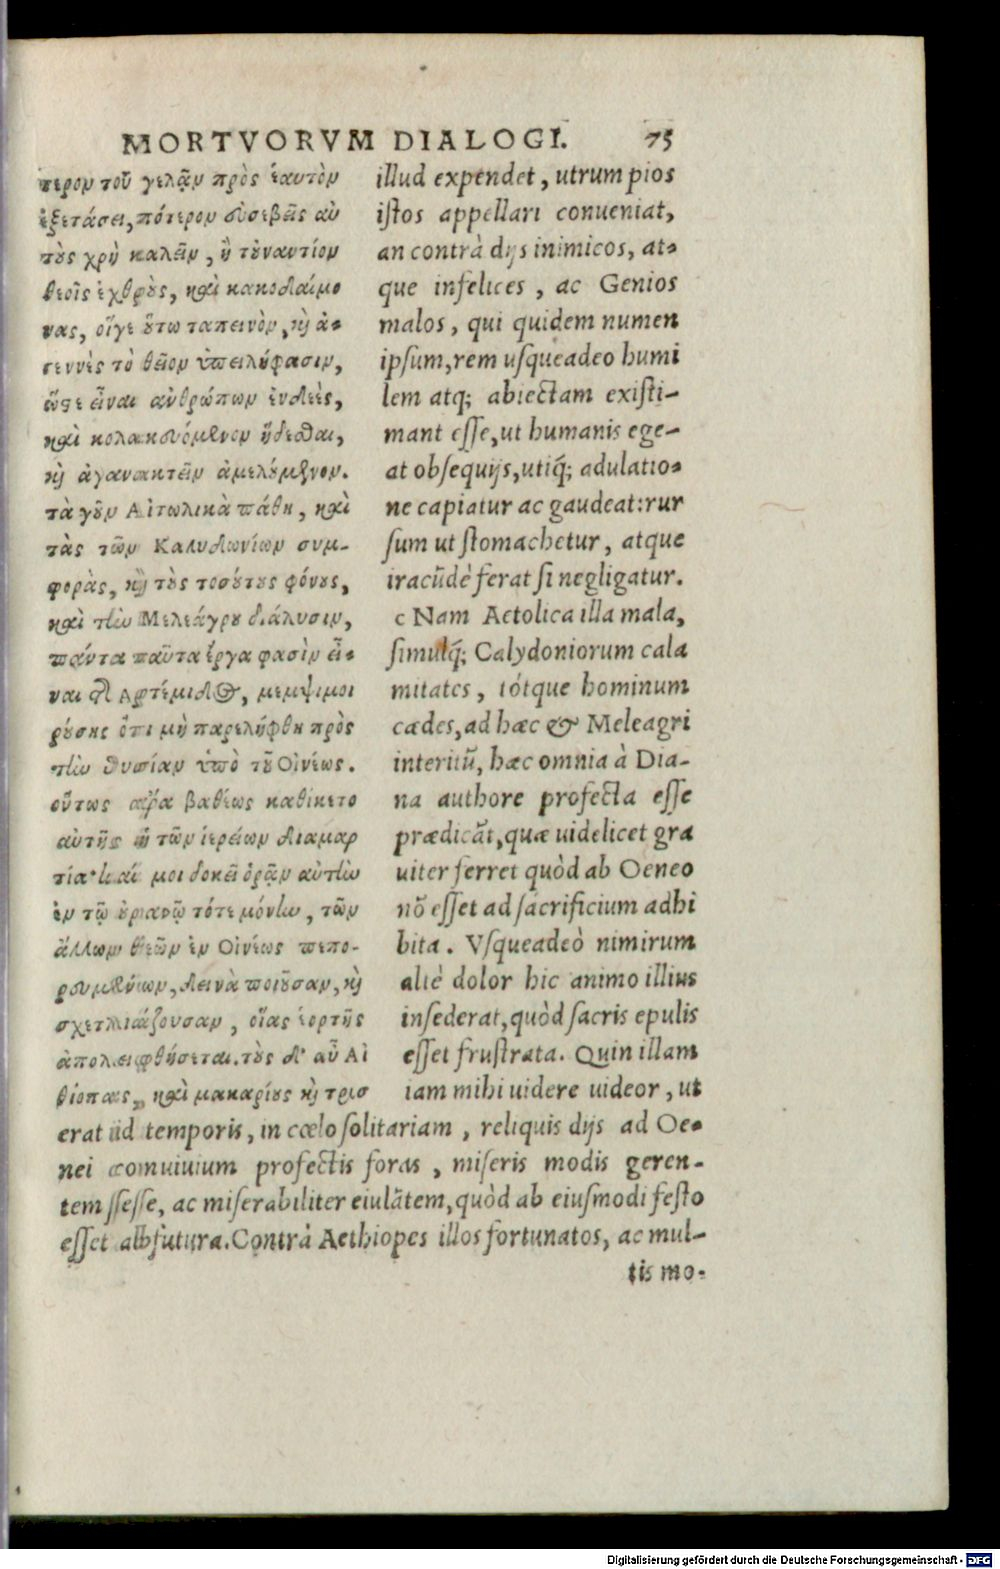 MORTVORVM DIALOGI. 75
τερον τοῦ γελᾷν πρὸς ἑαυτὸν
ἐξετάσει, πότερον εὐσεβεῖς αὐ
τοὺς χρὴ καλεῖν, ἢ τοὐναντίον
θεοῖς ἐχθροὺς, καὶ κακοδαίμο
νας, οἵγε οὕτω ταπεινὸν, καὶ ἀ-
γεννὲς τὸ θεῖον ὑπειλήφασιν,
ὥστε εἶναι ἀνθρώπων ἐνδεὲς,
καὶ κολακευόμενον ἥδεσθαι,
καὶ ἀγανακτεῖν ἀμελούμενον.
τὰ γοῦν Αἰτωλικὰ πάθη, καὶ
τὰς τῶν Καλυδωνίων συμ-
φορὰς, καὶ τοὺς τοσούτους φόνους,
καὶ τὴν Μελεάγρου διάλυσιν,
πάντα ταῦτα ἔργα φασὶν εἶ-
ναι τῆς Ἀρτέμιδος, μεμψιμοι
ρούσης ὅτι μὴ παρελήφθη πρὸς
τὴν θυσίαν ὑπὸ τοῦ Οἰνέως.
οὕτως ἄρα βαθέως καθίκετο
αὐτῆς ἡ τῶν ἱερείων διαμαρ
τία· καί μοι δοκεῖ ὁρᾷν αὐτὴν
ἐν τῷ οὐρανῷ τότε μόνην, τῶν
ἄλλων θεῶν ἐν Οἰνέως πεπο-
ρευμένων, δεινὰ ποιοῦσαν, καὶ
σχετλιάζουσαν, οἵας ἑορτῆς
ἀπολειφθήσεται. τοὺς δ' αὖ Αἰ
θίοπας, καὶ μακαρίους καὶ τρισ
illud expendet, utrum pios
istos appellari conueniat,
an contrà dijs inimicos, at-
que infelices, ac Genios
malos, qui quidem numen
ipsum, rem usqueadeo humi
lem atq; abiectam existi-
mant esse, ut humanis ege-
at obsequijs, utiq́; adulatio-
ne capiatur ac gaudeat: rur
sum ut stomachetur, atque
iracūdè ferat si negligatur.
c Nam Aetolica illa mala,
simulq́; Calydoniorum cala
mitates, tótque hominum
cædes, ad hæc & Meleagri
interitū, hæc omnia à Dia-
na authore profecta esse
prædicāt, quæ uidelicet gra
uiter ferret quòd ab Oeneo
nō esset ad sacrificium adhi
bita. Vsqueadeò nimirum
altè dolor hic animo illius
insederat, quòd sacris epulis
esset frustrata. Quin illam
iam mihi uidere uideor, ut
erat id temporis, in cœlo solitariam, reliquis dijs ad Oe-
nei conuiuium profectis foras, miseris modis geren-
tem ssesse, ac miserabiliter eiulātem, quòd ab eiusmodi festo
esset abfutura. Contrà Aethiopes illos fortunatos, ac mul-
tis mo-
Digitalisierung gefördert durch die Deutsche Forschungsgemeinschaft - DFG